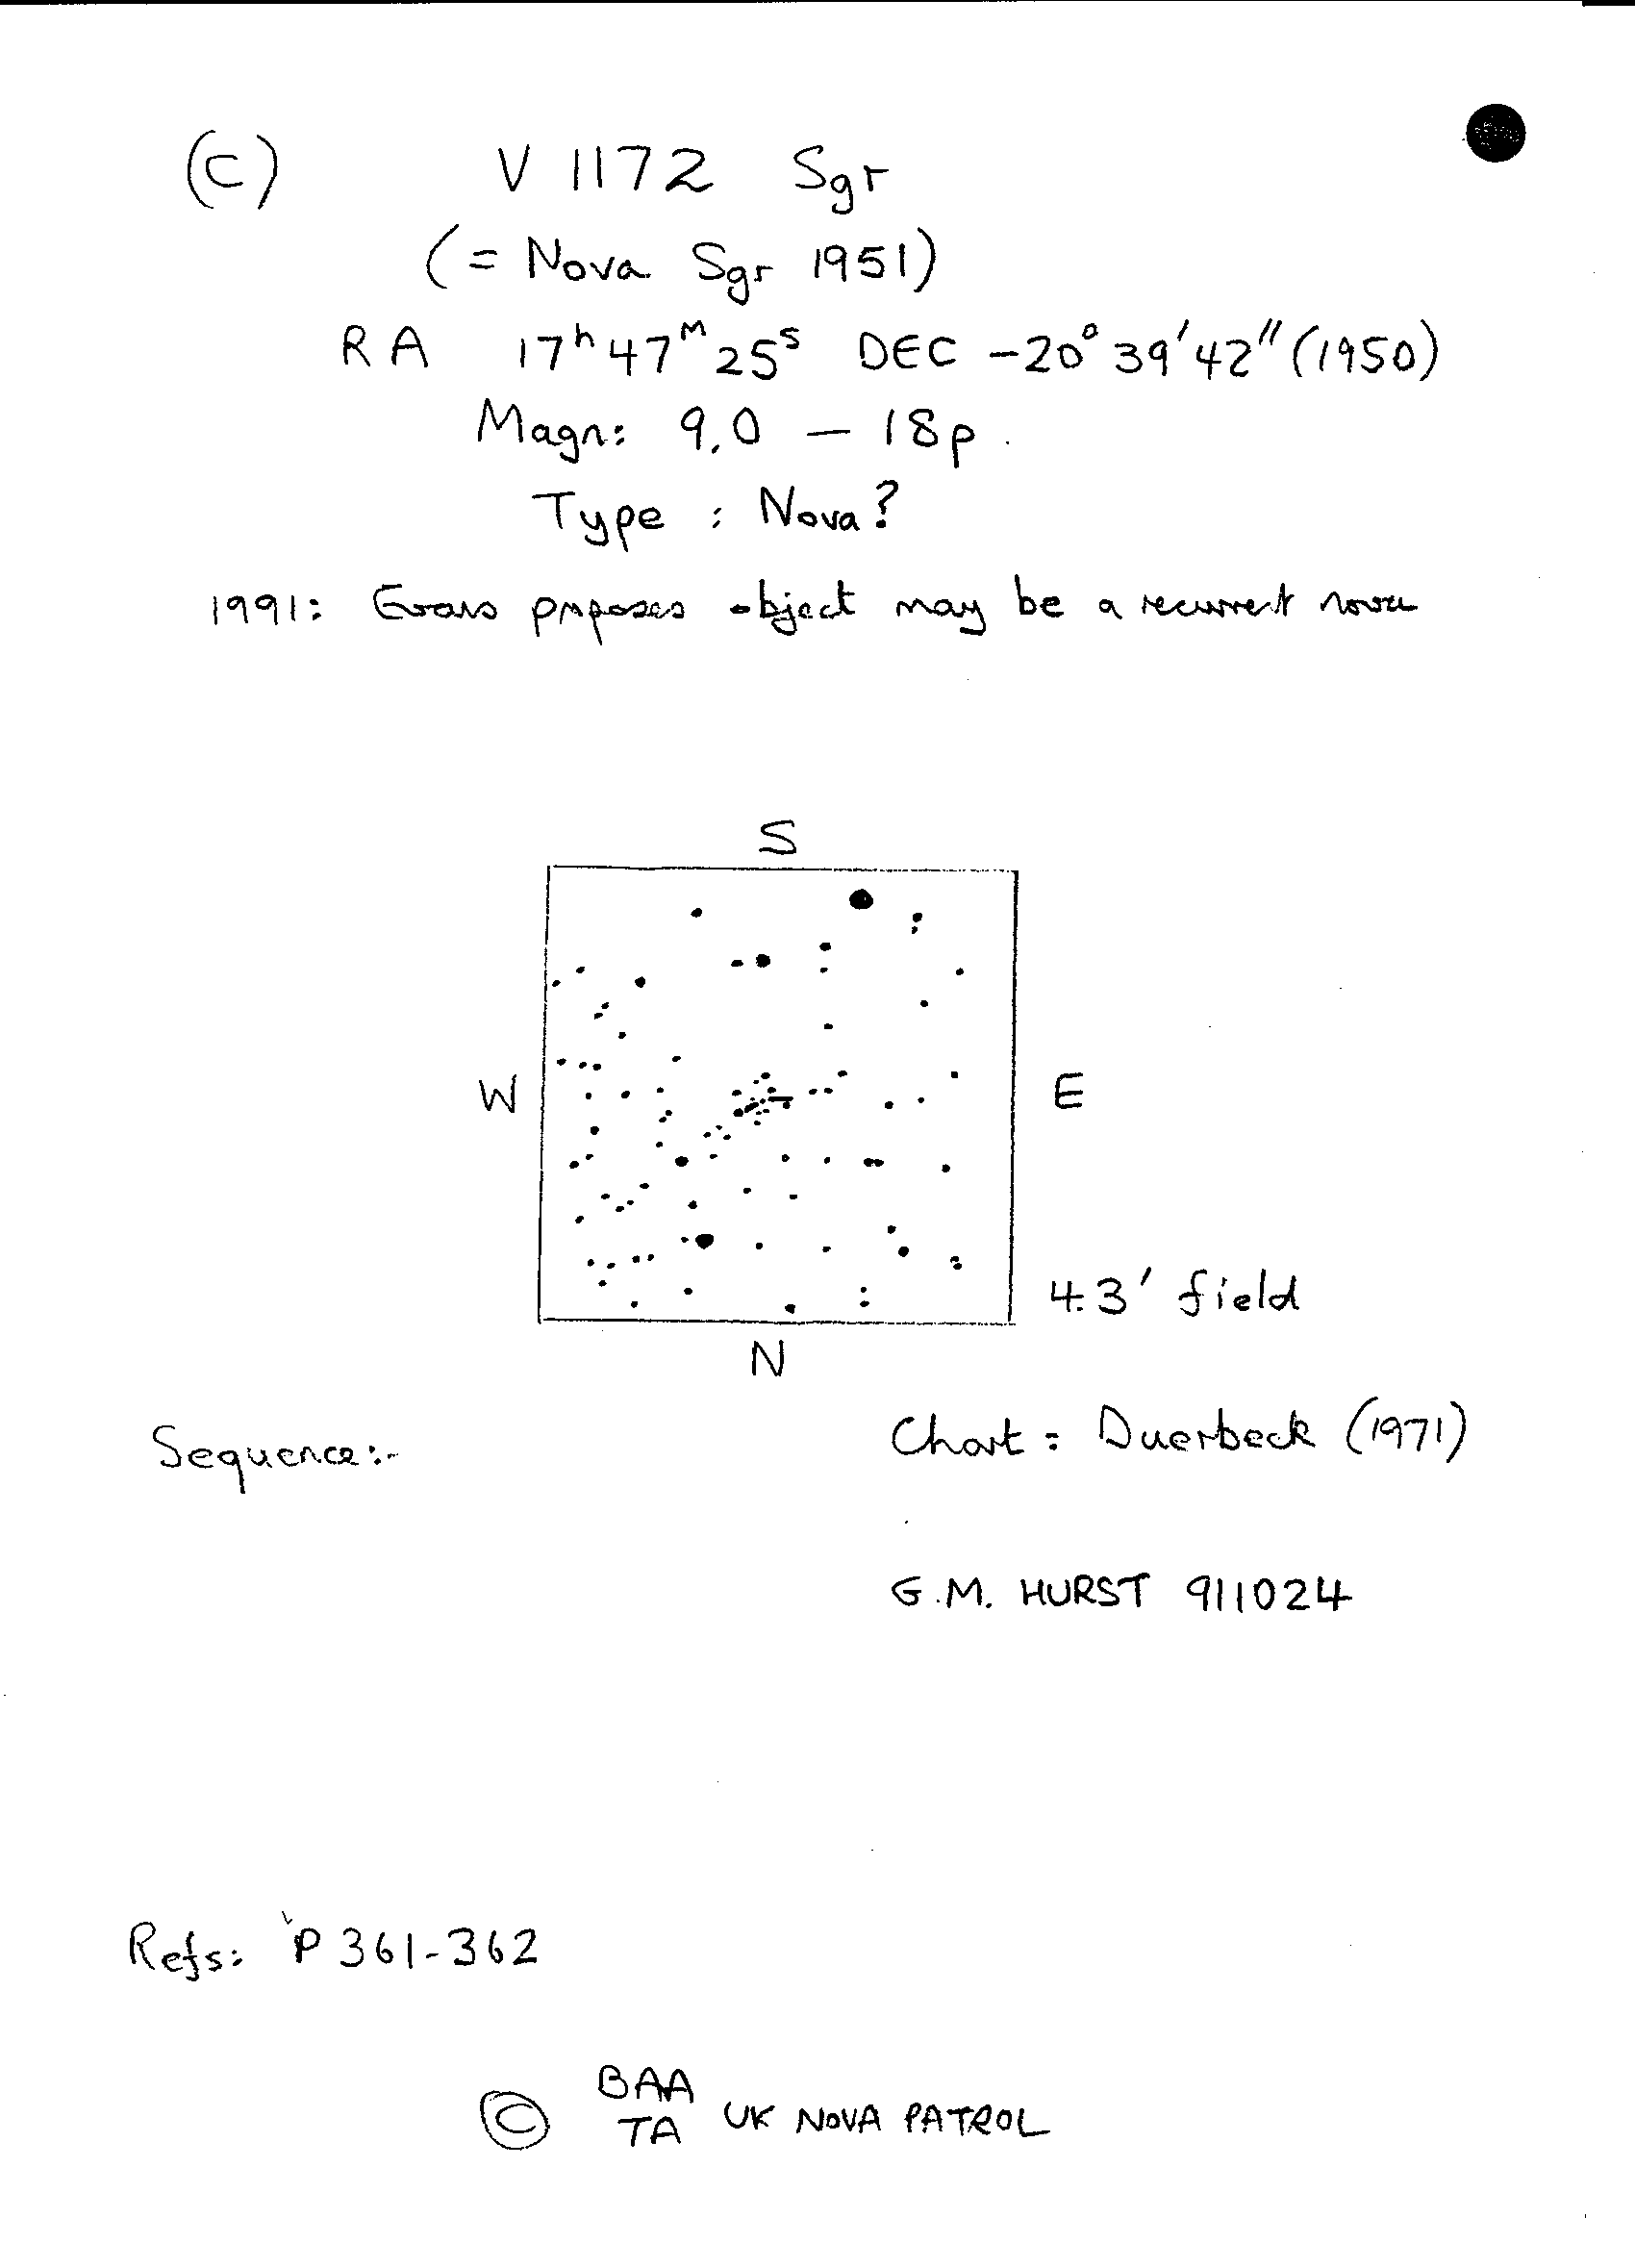 (C) V 1172 Sgr
(= Nova Sgr 1951)
RA 17ʰ 47ᴹ 25ˢ DEC -20° 39' 42" (1950)
Magn: 9.0 - 18p.
Type : Nova?
1991: Evans proposes object may be a recurrent nova
S
W
E
4.3' field
N
Chart: Duerbeck (1971)
Sequence:-
G.M. HURST 911024
Refs: P 361-362
© BAA
TA UK NOVA PATROL